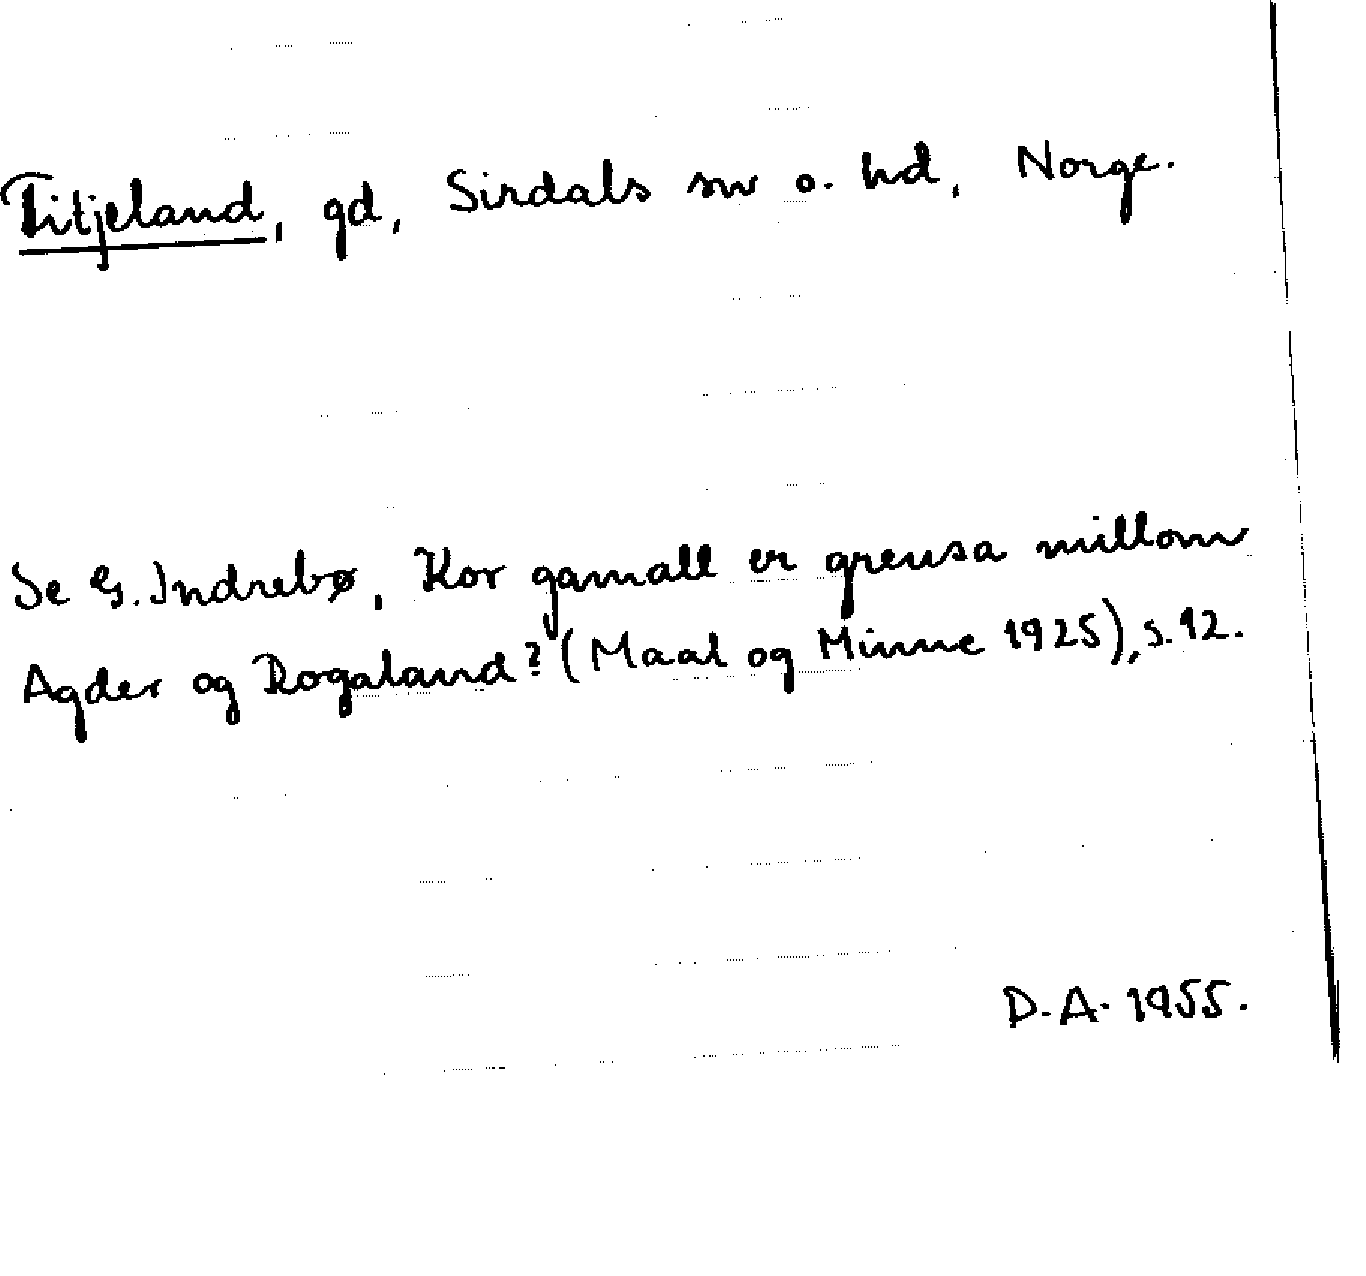 Titjeland, gd, Sirdals sn o. hd, Norge.
Se G. Indrebø, Kor gamall er grensa millom
Agder og Rogaland? (Maal og Minne 1925), s. 92.
D. A. 1955.